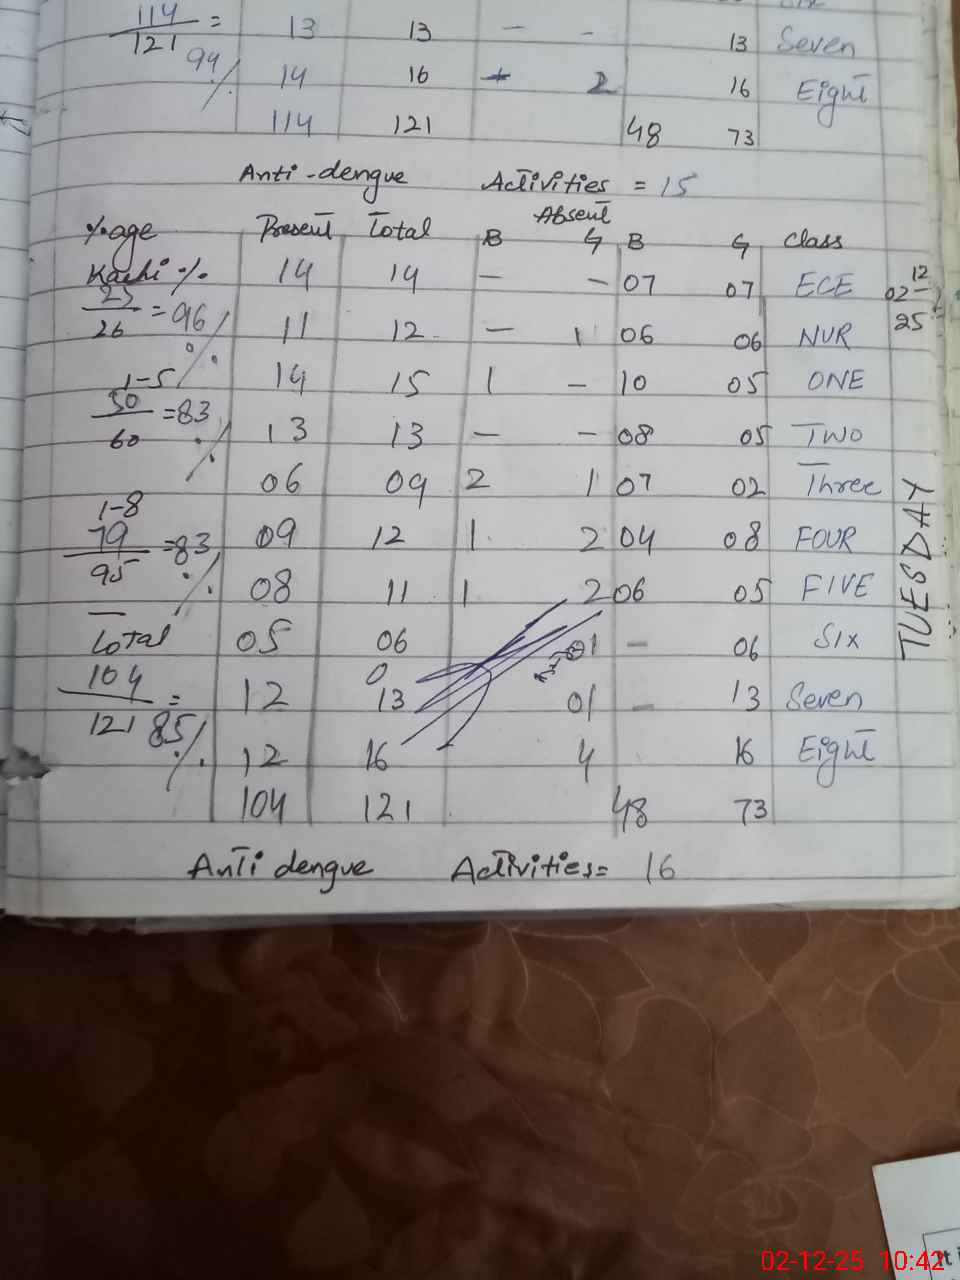 114/121 = 13 13 - - 13 Seven
94% 14 16 + 2 16 Eight
114 121 48 73
Anti-dengue Activities = 15
Absent
%age Present Total B G B G Class
Kachi % 14 14 - - 07 07 ECE
25/26 = 96% 11 12 - 1 06 06 NUR
1-5 14 15 1 - 10 05 ONE
50/60 = 83% 13 13 - - 08 05 Two
06 09 2 1 07 02 Three
1-8
79/95 = 83% 09 12 1 2 04 08 FOUR
08 11 1 2 06 05 FIVE
Total 05 06 01 - 06 Six
104/121 = 12 13 01 - 13 Seven
85% 12 16 4 16 Eight
104 121 48 73
Anti dengue Activities= 16
02-12-25
TUESDAY
02-12-25 10:42